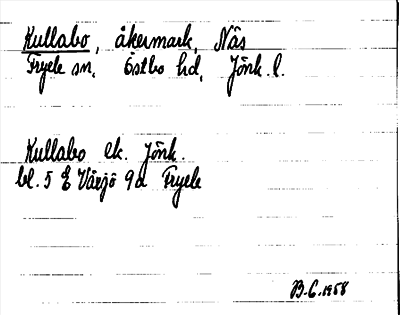 Kullabo, åkermark, Näs
Fryele sn, Östbo hd, Jönk. l.
Kullabo ek. Jönk.
bl. 5 E Värjö 9a Fryele
B.C. 1958